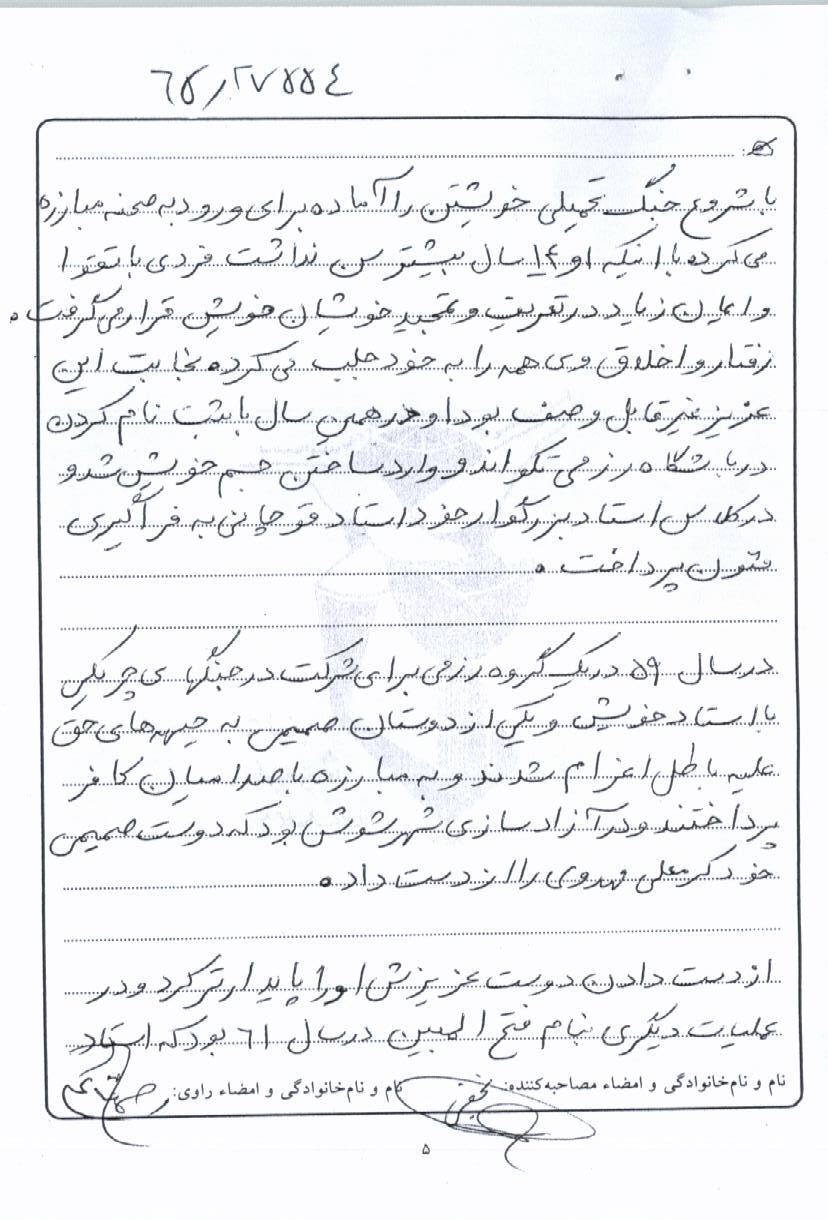 ۶۵۲۷۵۵۴
با شروع جنگ تحمیلی خویشتن را آماده برای ورود به صحنه مبارزه
می کرد. با اینکه او ۱۴ سال بیشتر سن نداشت فردی با تقوا
و ایمان زیاد در تعریف و تمجید خوشان خویش قرار می گرفت.
رفتار و اخلاق وی همه را به خود جلب می کرد. نجابت این
عزیز غیر قابل وصف بود او در همین سال با ثبت نام کردن
در باشگاه رزمی تکواندو وارد ساختن جسم خویش شد و
در کلاس استاد بزرگوار خود استاد قوچانی به فراگیری
فنون پرداخت.
در سال ۵۹ در یک گروه رزمی برای شرکت در جنگهای چریکی
با استاد خویش و یکی از دوستان صمیمی به جبهه های حق
علیه باطل اعزام شدند و به مبارزه با صدامیان کافر
پرداختند و در آزاد سازی شهر شوش بود که دوست صمیمی
خود کرمعلی مهروی را از دست داد.
از دست دادن دوست عزیزش او را پایدارتر کرد و در
عملیات دیگری بنام فتح المبین در سال ۶۱ بود که استاد
نام و نام‌خانوادگی و امضاء مصاحبه‌کننده: نام و نام‌خانوادگی و امضاء راوی:
۵